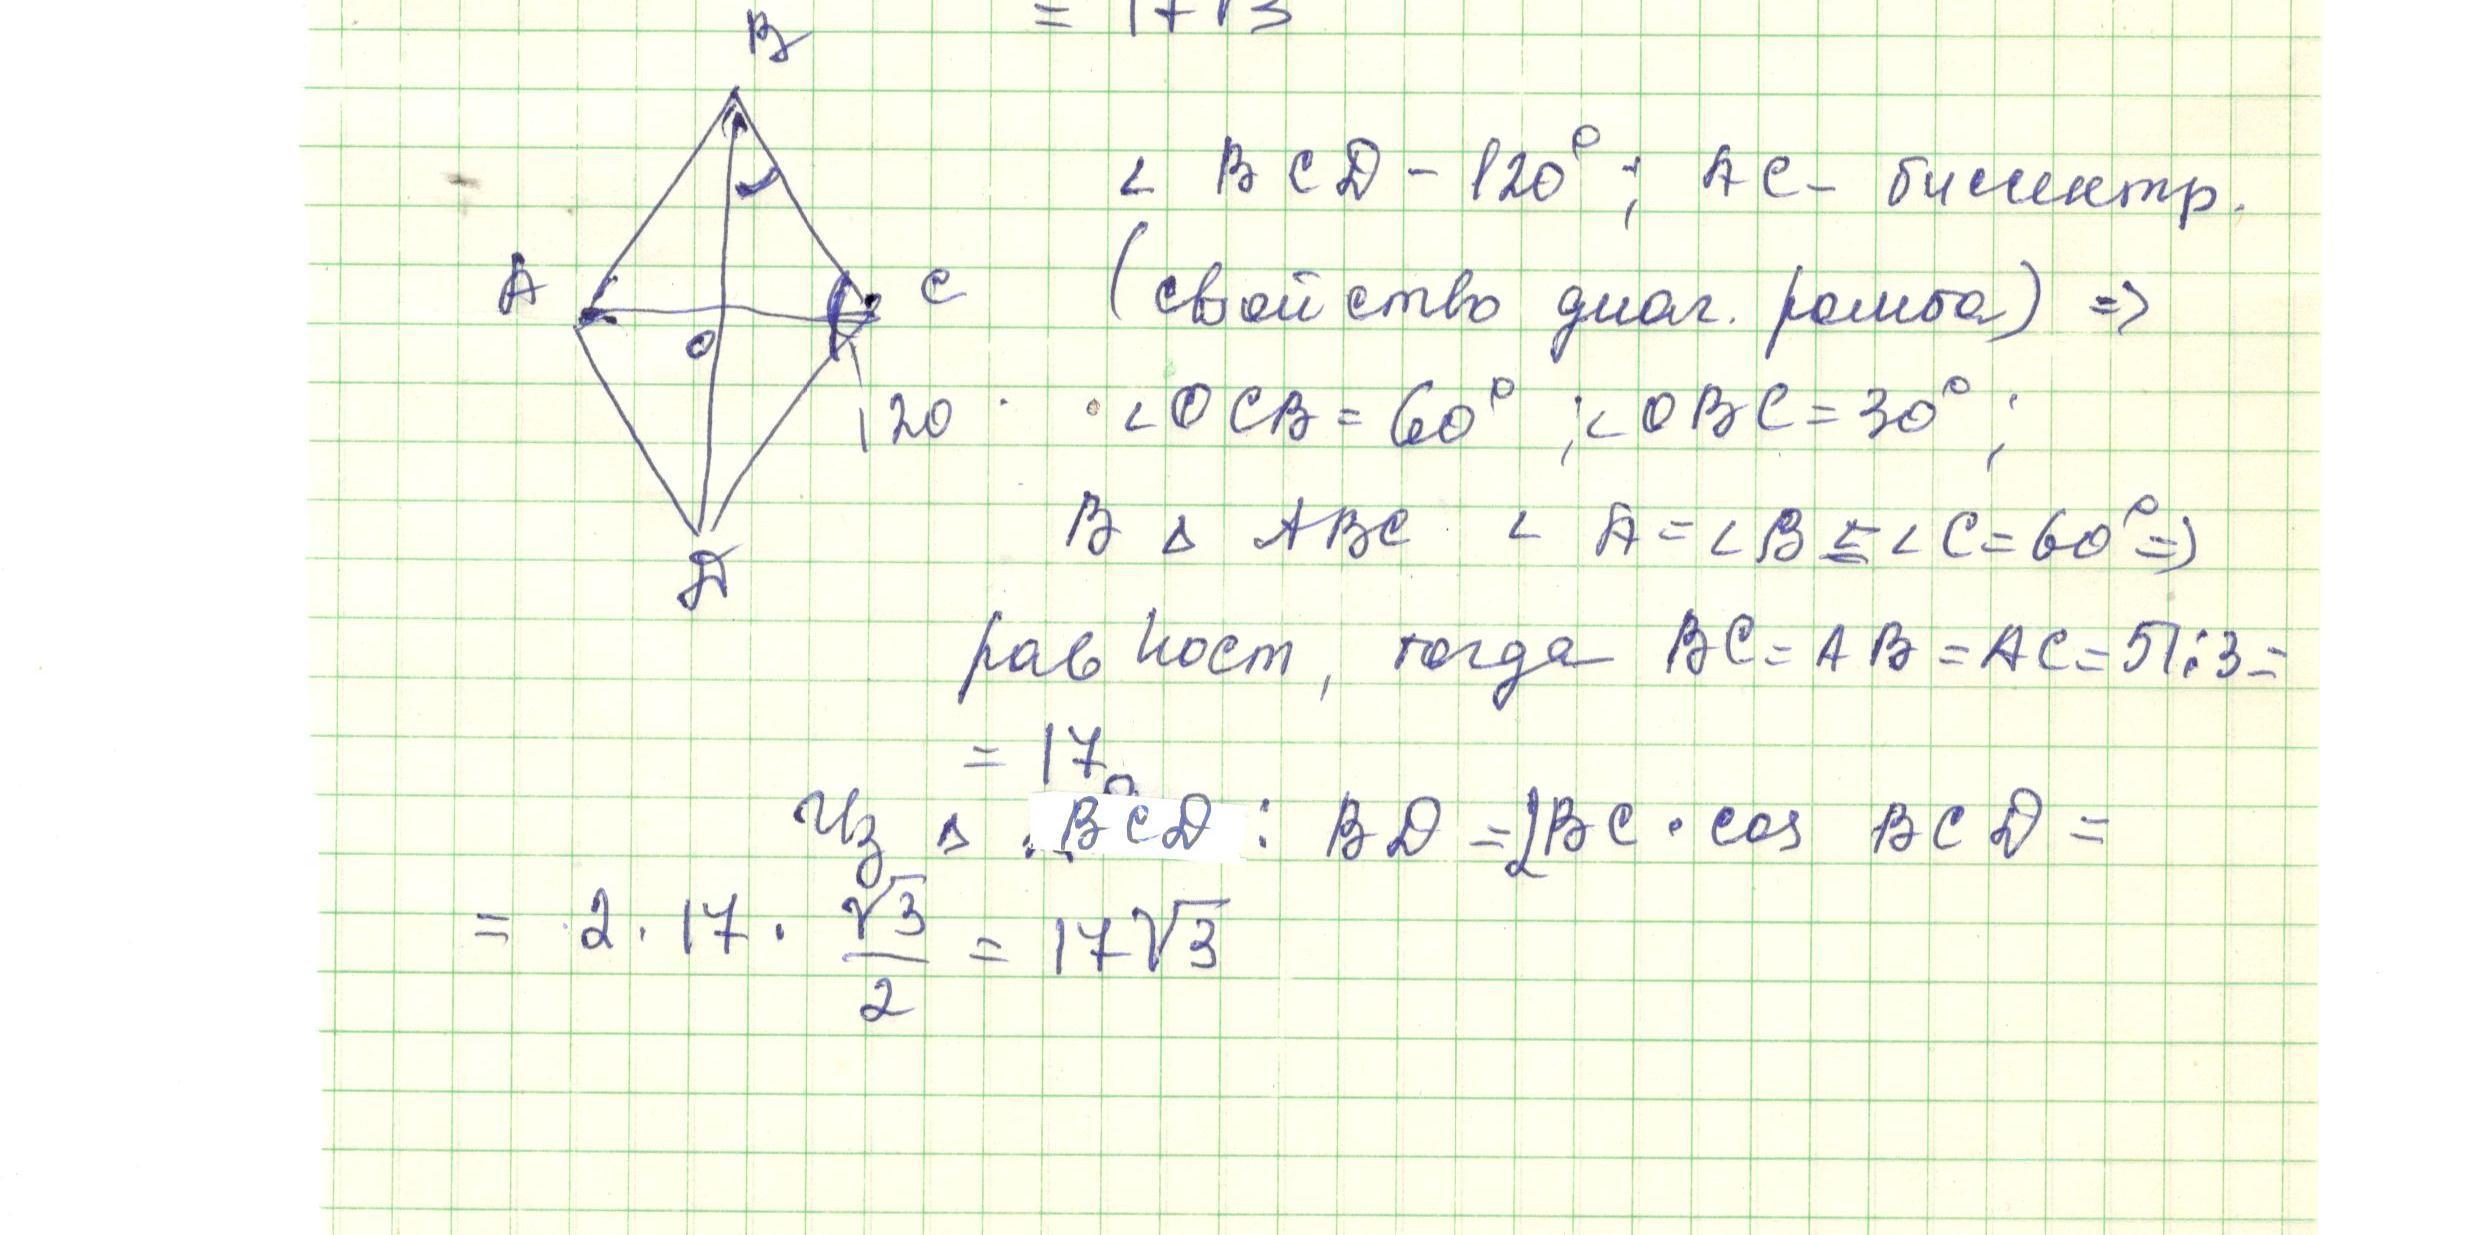 = 17√3
B
A
C
O
120
D
∠ BCD - 120°; AC - биссектр.
(свойство диаг. ромба) =>
∠OCB = 60°; ∠OBC = 30°;
В △ ABC ∠ A = ∠B = ∠C = 60° =>
равност, тогда BC = AB = AC = 51:3 =
= 17
Из △ BCD: BD = 2BC · cos BCD =
= 2 · 17 · √3/2 = 17√3